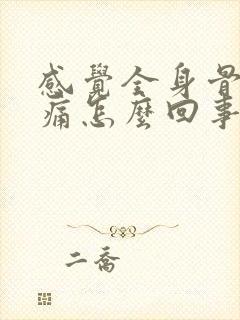 感覺全身骨
痛怎麼回事
二喬